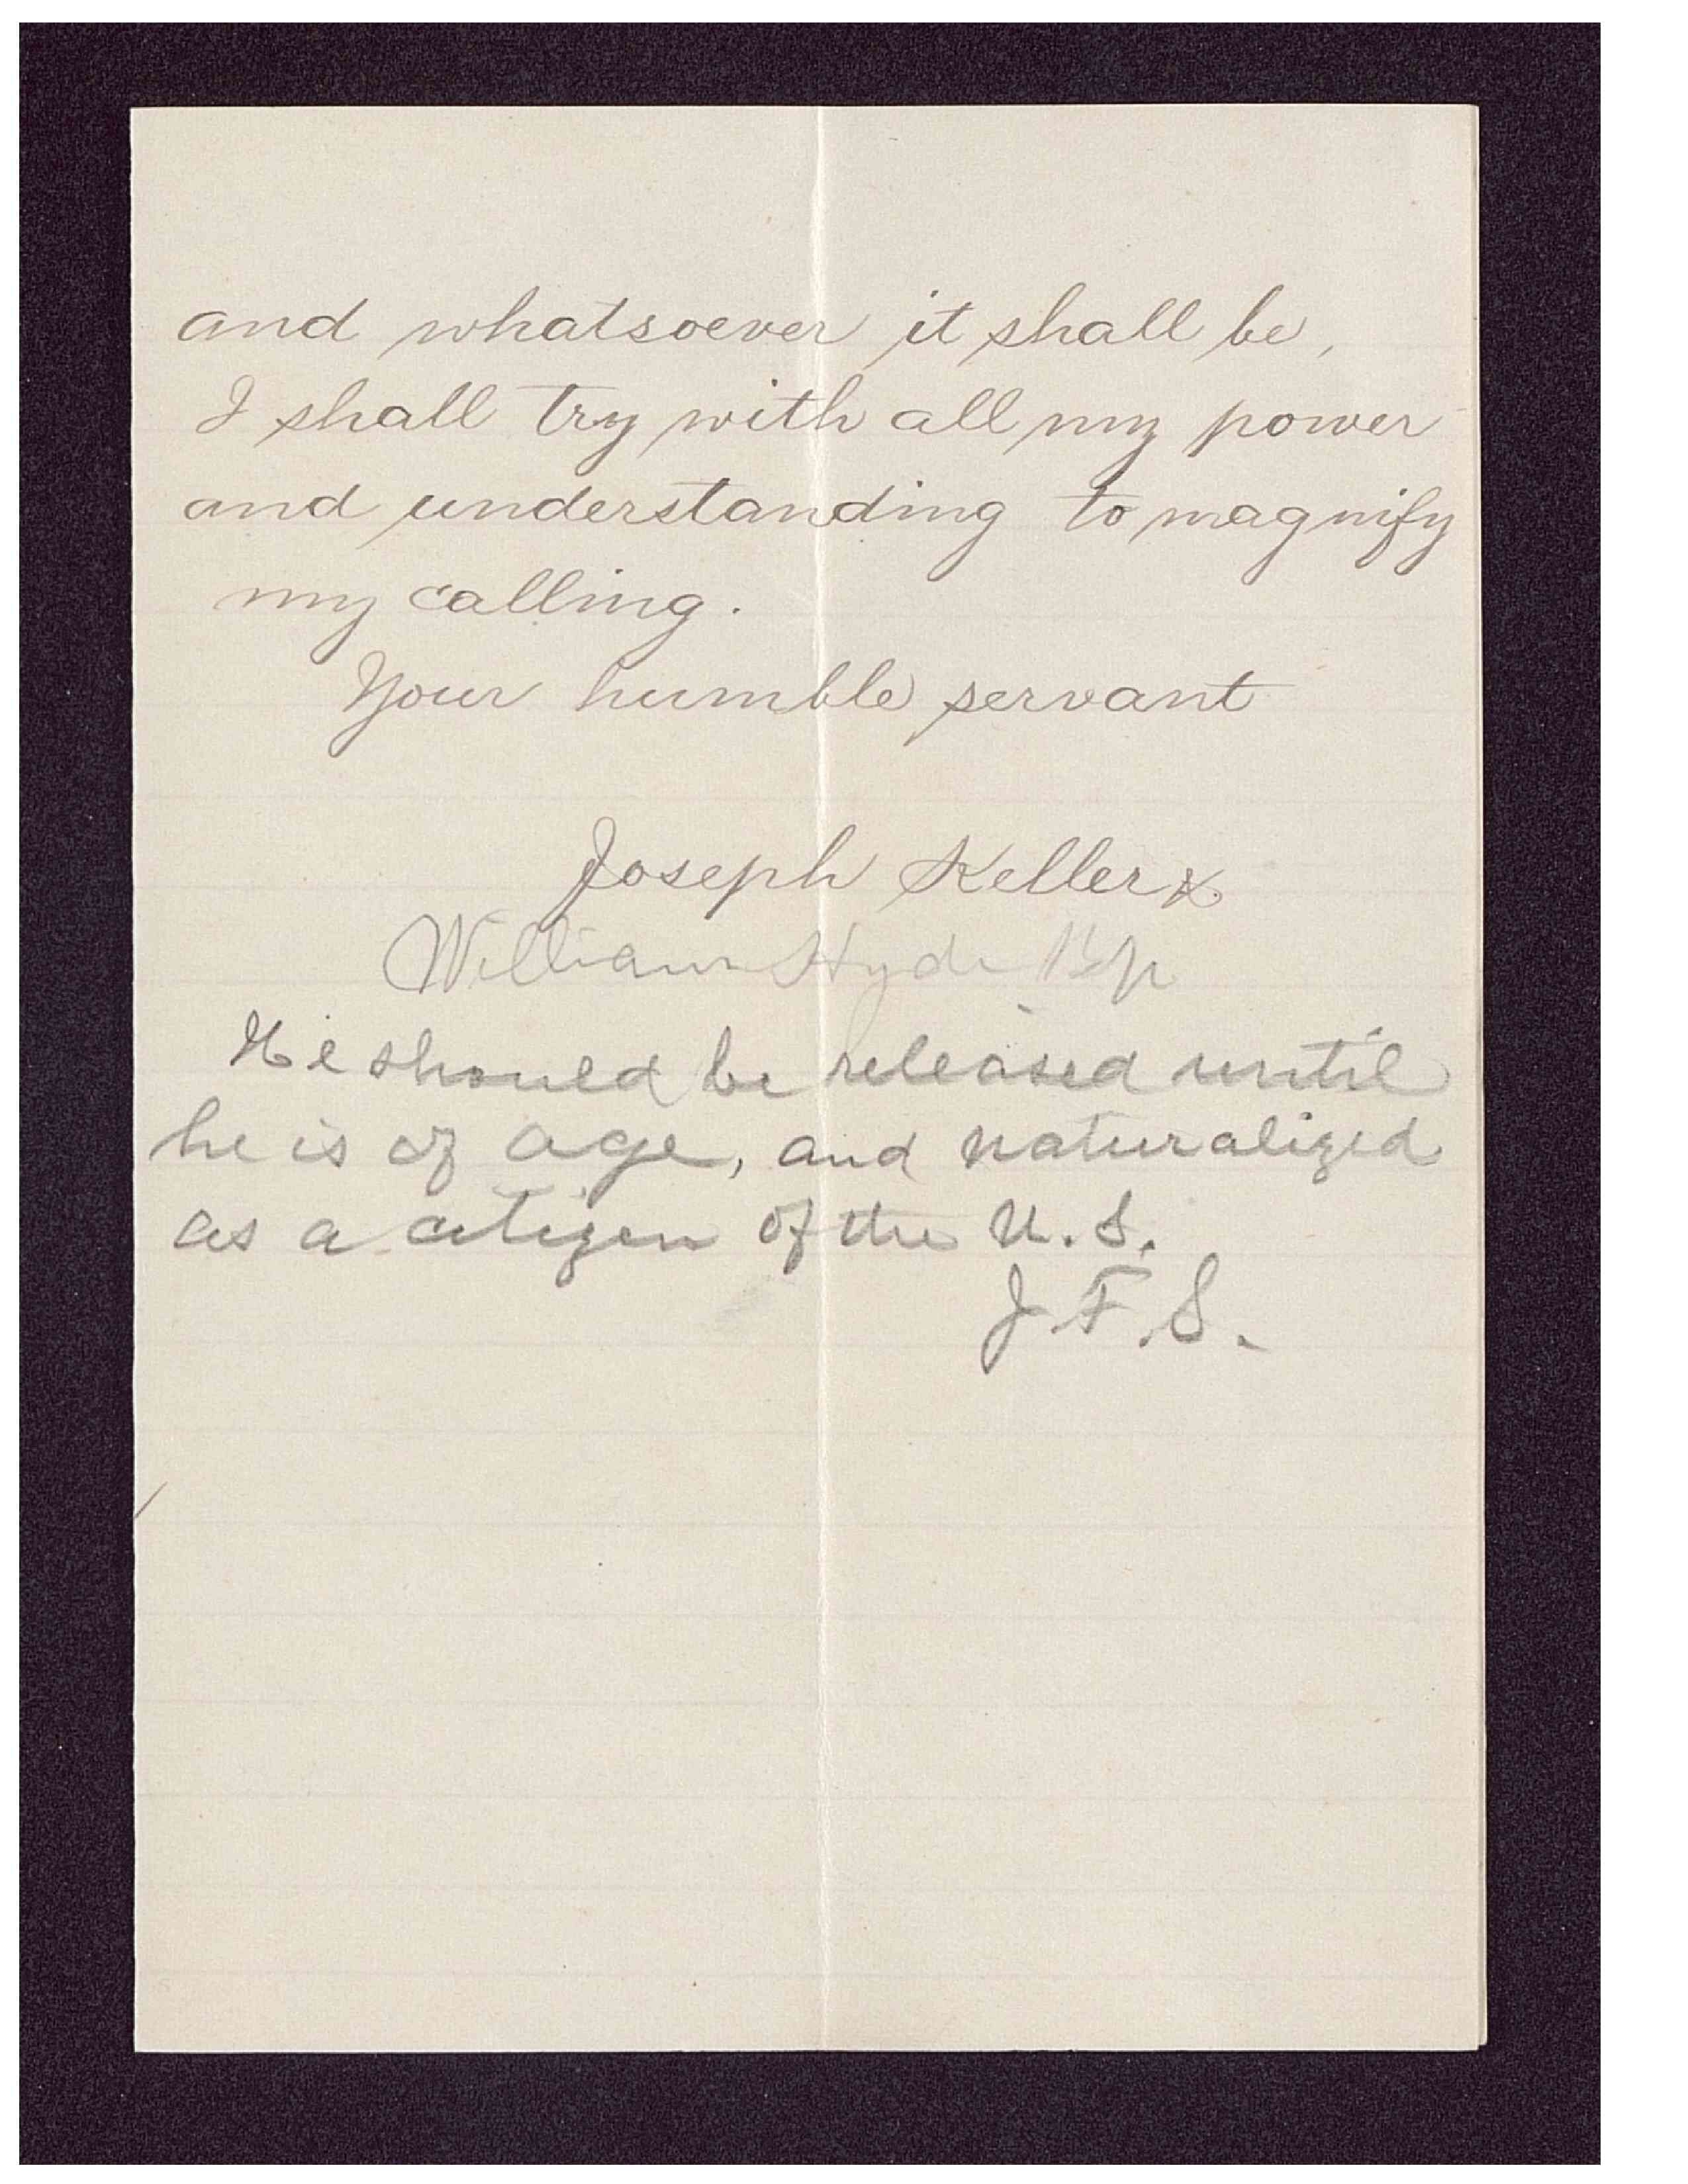 and whatsoever it shall be,
I shall try with all my power
and understanding to magnify
my calling.
Your humble servant
Joseph Keller
William Hyde Bp
He should be released until
he is of age, and naturalized
as a citizen of the U.S.
J.F.S.